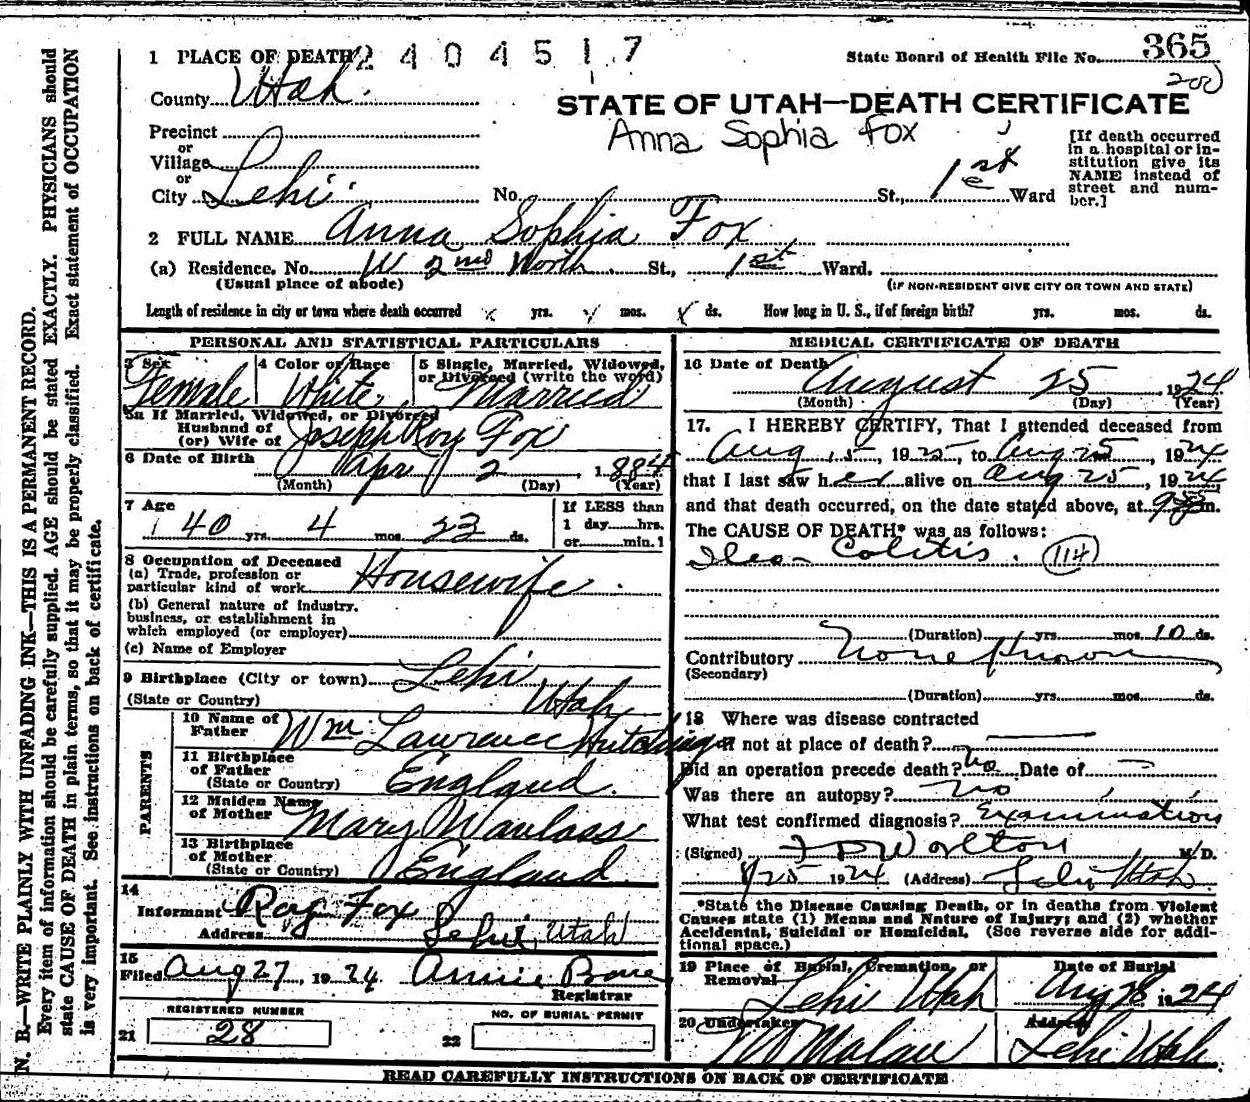 1 PLACE OF DEATH 2404517
State Board of Health File No. 365
200
County Utah.
STATE OF UTAH—DEATH CERTIFICATE
Anna Sophia Fox
Precinct
or
Village
or
City Lehi No. St., 1st Ward
[If death occurred
in a hospital or in-
stitution give its
NAME instead of
street and num-
ber.]
2 FULL NAME Anna Sophia Fox
(a) Residence. No. W 2nd North St., 1st Ward.
(Usual place of abode) (IF NON-RESIDENT GIVE CITY OR TOWN AND STATE)
Length of residence in city or town where death occurred yrs. mos. ds. How long in U. S., if of foreign birth? yrs. mos. ds.
PERSONAL AND STATISTICAL PARTICULARS
3 Sex 4 Color or Race 5 Single, Married, Widowed,
or Divorced (write the word)
Female White Married
5a If Married, Widowed, or Divorced
Husband of
(or) Wife of Joseph Roy Fox
6 Date of Birth Apr 2 1884
(Month) (Day) (Year)
7 Age 40 yrs. 4 mos. 23 ds.
If LESS than
1 day hrs.
or min.
8 Occupation of Deceased
(a) Trade, profession or
particular kind of work Housewife
(b) General nature of industry.
business, or establishment in
which employed (or employer)
(c) Name of Employer
9 Birthplace (City or town) Lehi
(State or Country) Utah
PARENTS
10 Name of
Father Wm. Lawrence Hutchings
11 Birthplace
of Father
(State or Country) England.
12 Maiden Name
of Mother Mary Wanlass
13 Birthplace
of Mother
(State or Country) England
14
Informant Roy Fox
Address Lehi, Utah
15
Filed Aug 27, 1924 Annie
Registrar
REGISTERED NUMBER
21 28
NO. OF BURIAL PERMIT
22
MEDICAL CERTIFICATE OF DEATH
16 Date of Death August 25 1924
(Month) (Day) (Year)
17. I HEREBY CERTIFY, That I attended deceased from
Aug 15, 1925, to Aug 25, 1924
that I last saw her alive on Aug 25, 1924
and that death occurred, on the date stated above, at m.
The CAUSE OF DEATH* was as follows:
Ileo-Colitis. 114
(Duration) yrs. mos. 10 ds.
Contributory None Known
(Secondary)
(Duration) yrs. mos. ds.
18 Where was disease contracted
if not at place of death?
Did an operation precede death? No Date of —
Was there an autopsy? No
What test confirmed diagnosis? Examination
(Signed) Worlton M.D.
8/25 1924 (Address) Lehi Utah
*State the Disease Causing Death, or in deaths from Violent
Causes state (1) Means and Nature of Injury; and (2) whether
Accidental, Suicidal or Homicidal. (See reverse side for addi-
tional space.)
19 Place of Burial, Cremation, or
Removal Lehi Utah
Date of Burial
Aug 28 1924
20 Undertaker Malan
Address
Lehi Utah
READ CAREFULLY INSTRUCTIONS ON BACK OF CERTIFICATE
N. B.—WRITE PLAINLY WITH UNFADING INK—THIS IS A PERMANENT RECORD.
Every item of information should be carefully supplied. AGE should be stated EXACTLY. PHYSICIANS should
state CAUSE OF DEATH in plain terms, so that it may be properly classified. Exact statement of OCCUPATION
is very important. See instructions on back of certificate.